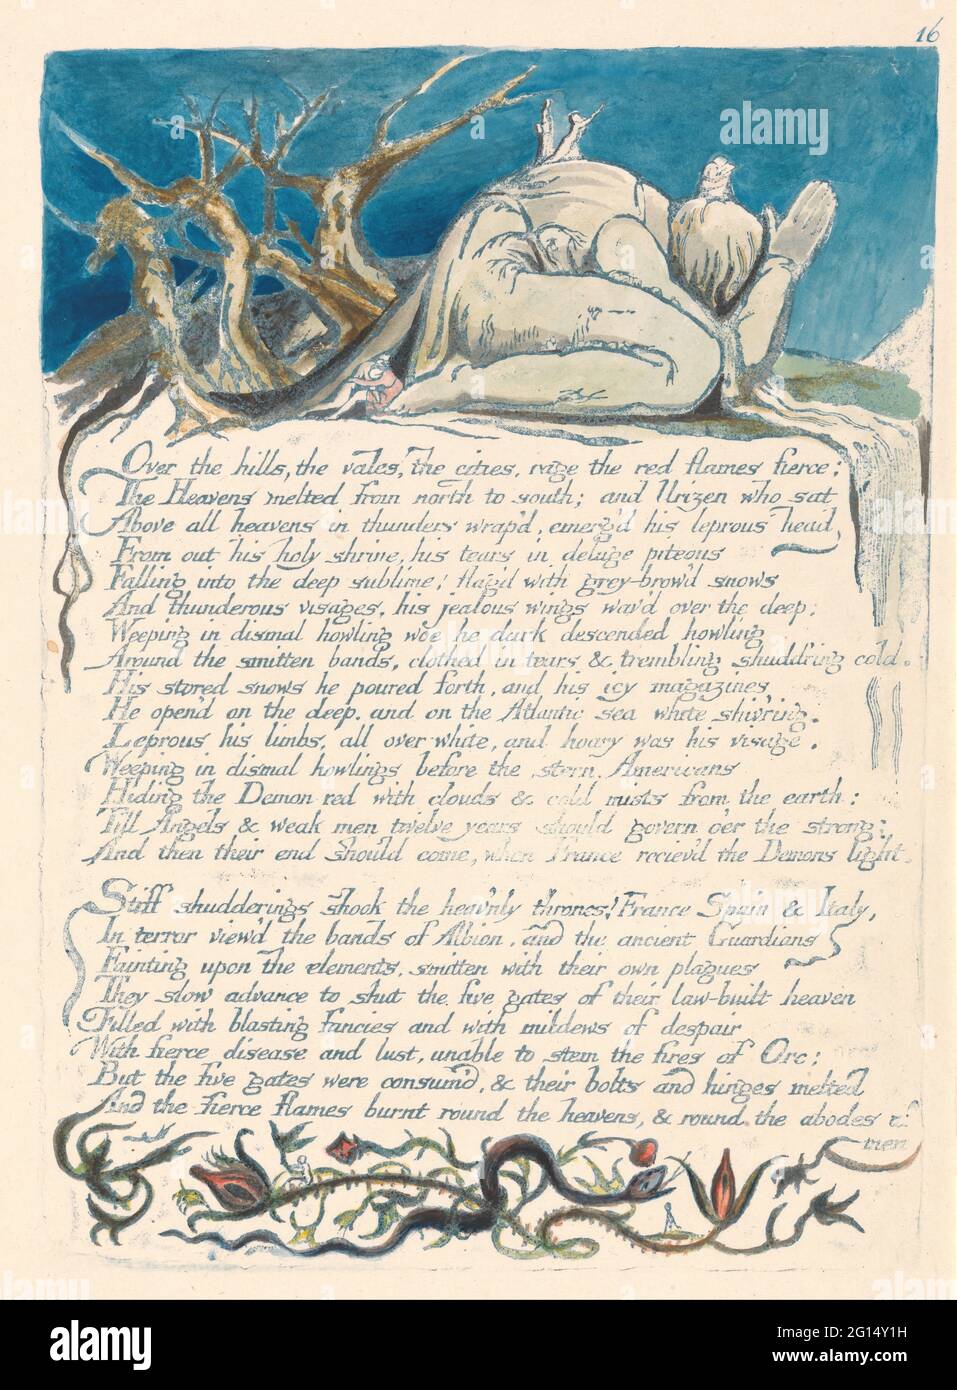 16
Over the hills, the vales, the cities, rage the red flames fierce;
The Heavens melted from north to south; and Urizen who sat
Above all heavens in thunders wrap'd, emerg'd his leprous head
From out his holy shrine, his tears in deluge piteous
Falling into the deep sublime! flag'd with grey-brow'd snows
And thunderous visages, his jealous wings wav'd over the deep;
Weeping in dismal howling woe he dark descended howling
Around the smitten bands, clothed in tears & trembling shudd'ring cold.
His stored snows he poured forth, and his icy magazines
He open'd on the deep, and on the Atlantic sea white shiv'ring.
Leprous his limbs, all over white, and hoary was his visage.
Weeping in dismal howlings before the stern Americans
Hiding the Demon red with clouds & cold mists from the earth:
Till Angels & weak men twelve years should govern o'er the strong:
And then their end should come, when France reciev'd the Demons light.
Stiff shudderings shook the heav'nly thrones! France Spain & Italy,
In terror view'd the bands of Albion, and the ancient Guardians
Fainting upon the elements, smitten with their own plagues
They slow advance to shut the five gates of their law-built heaven
Filled with blasting fancies and with mildews of despair
With fierce disease and lust, unable to stem the fires of Orc;
But the five gates were consum'd, & their bolts and hinges melted
And the fierce flames burnt round the heavens, & round the abodes of
men
alamy
alamy
Image ID: 2G14Y1H
www.alamy.com